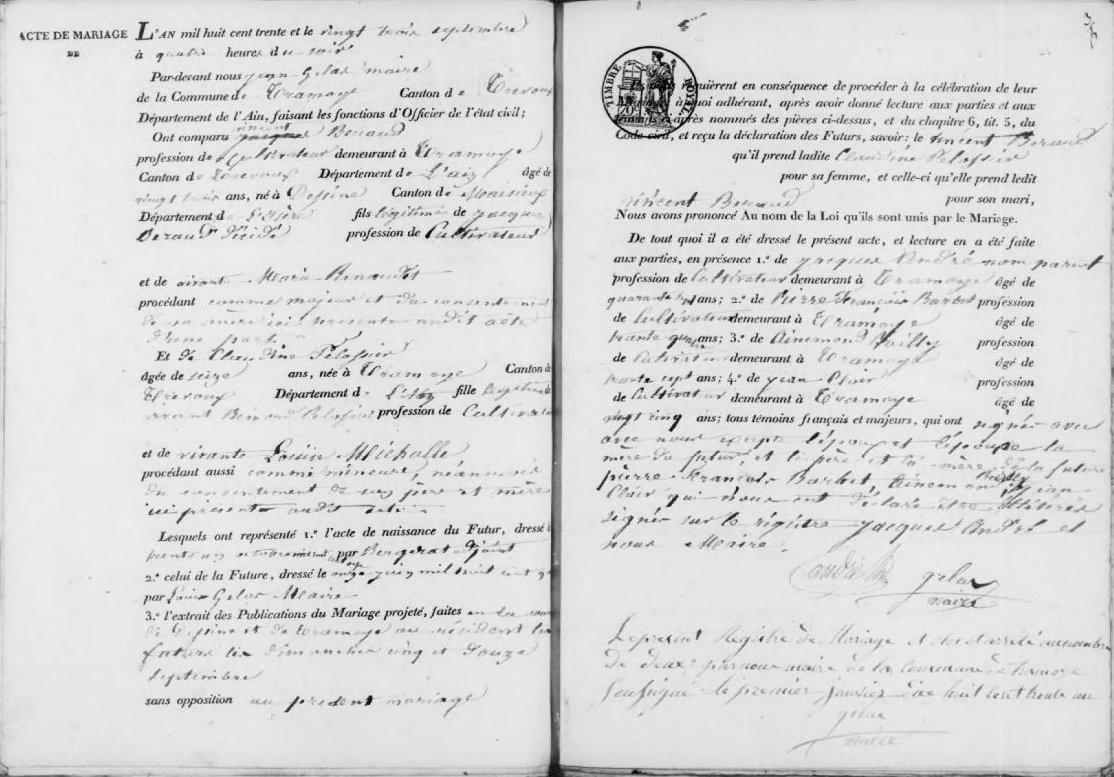 ACTE DE MARIAGE
DE
L'AN mil huit cent trente et le vingt trois septembre
à quatre heures du soir
Par-devant nous jean Gelas maire
de la Commune de Tramoye Canton de Trevoux
Département de l'Ain, faisant les fonctions d'Officier de l'état civil;
Ont comparu vincent Beraud
profession de Cultivateur demeurant à Tramoye
Canton de Trevoux Département de L'ain âgé de
vingt trois ans, né à Dessine Canton de Maisieux
Département de L'isère fils légitime de jacque
Beraud décédé profession de Cultivateur
et de vivante Marie Benaudet
procédant comme majeur et du consentement
de sa mère ici présente audit acte
d'une part
Et de Claudine Pelossier
âgée de seize ans, née à Tramoye Canton de
Trevoux Département de L'ain fille légitime
vivant Benoid Pelossier profession de Cultivateur
et de vivante Louise Michalle
procédant aussi comme mineure, néanmois
du consentement de ses père et mère
ici présents audit acte
Lesquels ont représenté 1.° l'acte de naissance du Futur, dressé le
par Bergerat adjoint
2.° celui de la Future, dressé le onze juin mil huit cent
par Louis Gelas Maire
3.° l'extrait des Publications du Mariage projeté, faites en la
de Dessine et de Tramoye ou résident les
futurs les dimanches cinq et douze
septembre
sans opposition au présent mariage
TIMBRE ROYAL
requièrent en conséquence de procéder à la célébration de leur
à quoi adhérant, après avoir donné lecture aux parties et aux
témoins ci-après nommés des pièces ci-dessus, et du chapitre 6, tit. 5, du
Code civil, et reçu la déclaration des Futurs, savoir: le vincent Beraud
qu'il prend ladite Claudine Pelossier
pour sa femme, et celle-ci qu'elle prend ledit
vincent Beraud pour son mari,
Nous avons prononcé Au nom de la Loi qu'ils sont unis par le Mariage.
De tout quoi il a été dressé le présent acte, et lecture en a été faite
aux parties, en présence 1.° de jacques André nom parent
profession de Cultivateur demeurant à Tramoye âgé de
quarante ans; 2.° de Pierre François Barbet profession
de Cultivateur demeurant à Tramoye âgé de
trante ans; 3.° de Ainemond Bailly profession
de Cultivateur demeurant à Tramoye âgé de
trante sept ans; 4.° de jean Clair profession
de Cultivateur demeurant à Tramoye âgé de
vingt cinq ans; tous témoins français et majeurs, qui ont signés avec
avec nous excepté l'époux et l'épouse la
mère du futur, et le père et la mère de la future
pierre François Barbet, Ainemond Bailly jean
Clair qui nous ont déclaré être illitérés
signés sur le régistre jacques André et
nous Maire.
andré
gelas
maire
Le présent Registre de Mariage a été clos et arrêté au nombre
de deux par nous maire de la commune de tramoye
soussigné le premier janvier mil huit cent trente un
gelas
maire